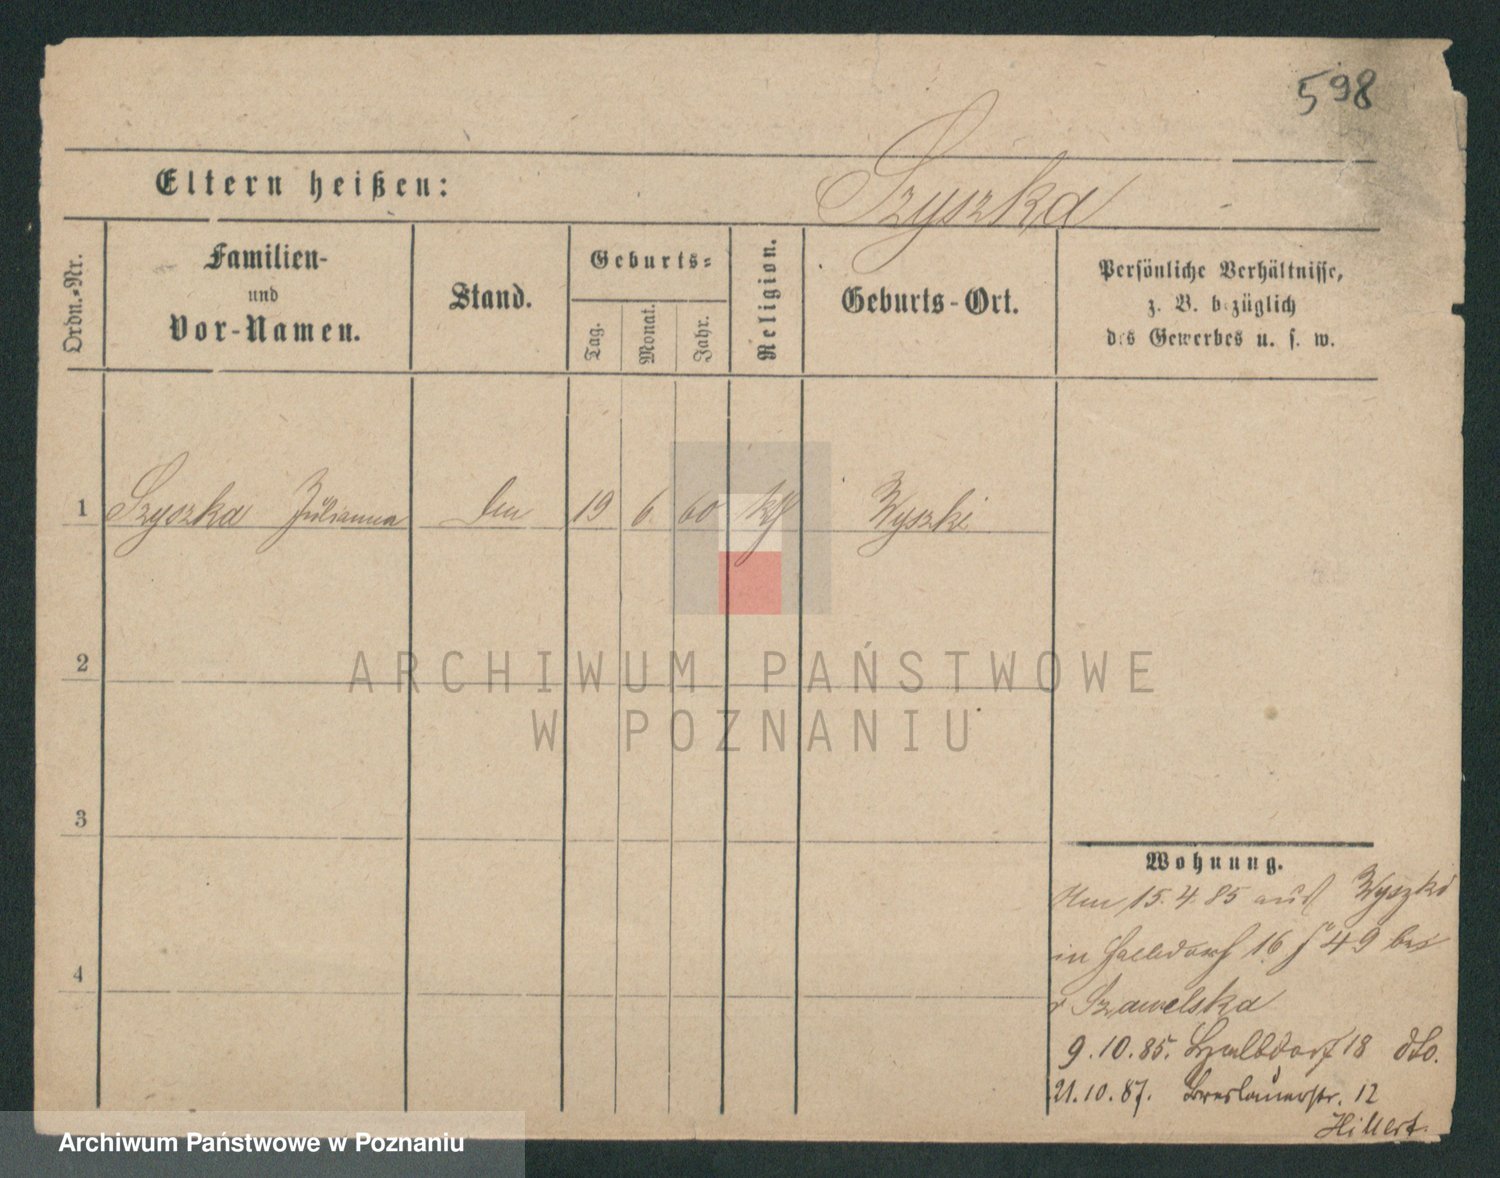 598
Eltern heißen:
Szyszka
Ordn.-Nr.
Familien-
und
Vor-Namen.
Stand.
Geburts-
Tag.
Monat.
Jahr.
Religion.
Geburts-Ort.
Persönliche Verhältnisse,
z. B. bezüglich
des Gewerbes u. s. w.
1 Szyszka Julianna 19 6 60 kth Wyszki
2
3
4
ARCHIWUM PAŃSTWOWE
W POZNANIU
Wohnung.
Am 15.4.85 aus Wyszki
in Halbdorf 16 49 bei
Szawelska
9.10.85. Halbdorf 18 dto.
21.10.87. Breslauerstr. 12
Hillert.
Archiwum Państwowe w Poznaniu